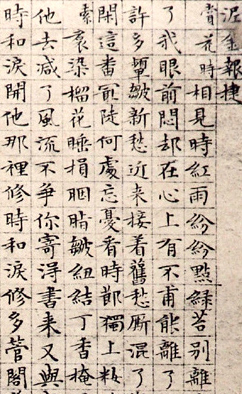 泥金報捷
賞花時相見時紅雨紛紛點緑苔別離
了我眼前悶却在心上有不甫能離了
許多顰皺新愁近来接着舊愁廝混了
閑這番冣陡何處忘憂看時節獨上粧
索裛染榴花睡損胭脂皺紐結丁香掩
他去减了風流不爭你寄淂書来又與
時和淚開他那裡修時和淚修多管閣